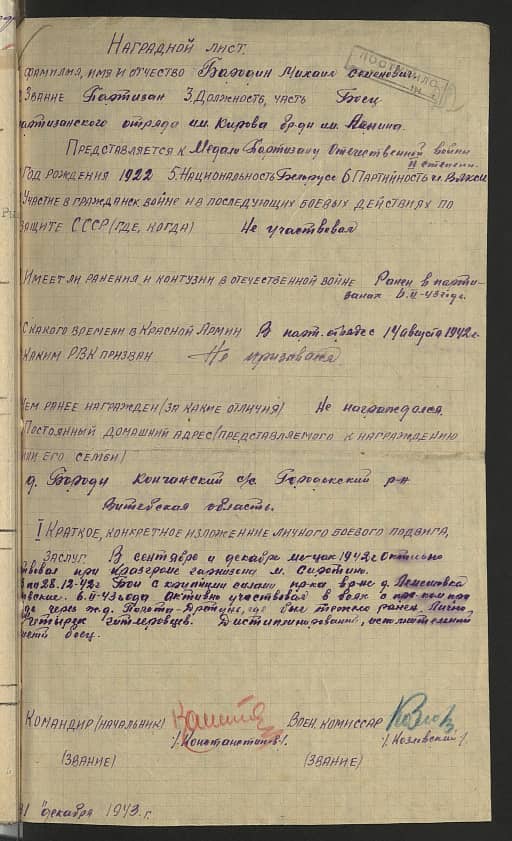 Наградной лист.
Фамилия, имя и отчество Бародин Михаил Семенович
Звание Партизан 3. Должность, часть Боец
партизанского отряда им. Кирова бр-ды им. Ленина.
Представляется к Медали Партизану Отечественной войны
II степени.
Год рождения 1922 5. Национальность Белорус 6 Партийность чл. ВЛКСМ
Участие в гражданск. войне и в последующих боевых действиях по
защите СССР (где, когда) Не участвовал
Имеет ли ранения и контузии в отечественной войне Ранен в парти-
занах 6.II-43 года.
С какого времени в Красной Армии В парт. отряде с 14 августа 1942 г.
Каким РВК призван Не призывался
Чем ранее награжден (за какие отличия) Не награждался.
Постоянный домашний адрес (представляемого к награждению
или его семьи)
д. Бароди Кончанский с/с Городокский р-н
Витебская область.
I Краткое, конкретное изложение личного боевого подвига,
заслуг В сентябре и декабре м-цах 1942 г. Активно
при разгроме гарнизона м. Сиротино.
28.12-42 г Бои с крупными силами пр-ка в р-не д.
6.II-43 года Активно участвовал в боях с пр-ком при
через ж.д. Полота-Дретунь, где был тяжело ранен. Лично
четырех гитлеровцев. Дисциплинированный, исполнительный
боец.
Командир (начальник) Воен. комиссар
/.Константинов/. /.Козловский/.
(звание) (звание)
декабря 1943 г.